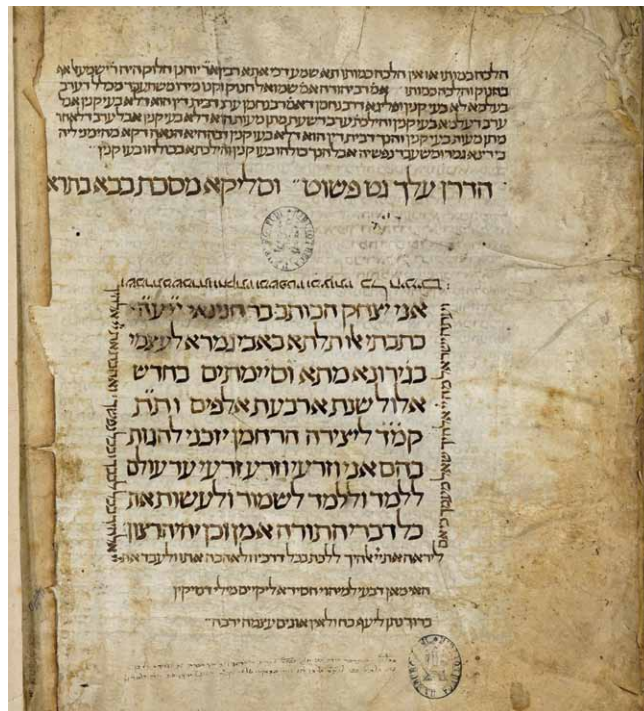 הלכה כמותו או אין הלכה כמותו תא שמע דכי אתא רבין אר יוחנן חלוק היה ר ישמעאל אפ
בחנוק והלכה כמותו אמ רב יהודה אמ שמואל חנוק וקנו מידו משתעבד מכלל דערב
בעלמא לא בעי קנין ופליגא דרב נחמן דאמ רב נחמן ערב דבית דין הוא דלא בעי קנין אבל
ערב דעלמא בעי קנין והלכת ערב בשעת מתן מעות הוא דלא בעי קנין אבל ערב דלאחר
מתן מעות בעי קנין והנך דבית דין הוא דלא בעי קנין דבההיא הנאה דקא מהימני ליה
בי דינא גמר ומשעבד נפשיה אבל הנך כולהו בעו קנין והילכתא בכולהו בעו קנין
הדרן עלך גט פשוט וסליקא מסכת בבא בתרא
אני יצחק הכותב בר חנינאי יזעה
כתבתי אותלתא באבי גמרא לעצמי
בגירונא מתא וסיימתים בחדש
אלול שנת ארבעת אלפים ותת
קמד ליצירה הרחמן יזכני להגות
בהם אני וזרעי וזרע זרעי עד עולם
ללמוד וללמד לשמור ולעשות את
כל דברי התורה אמן וכן יהי רצון
ליראה את יי אלהיך ללכת בכל דרכיו ולאהבה אתו ולעבד את
ועתה ישראל מה יי אלהיך שואל מעמך כי אם
האי מאן דבעי למיהוי חסידא ליקיים מילי דנזיקין
ברוך נותן ליעף כח ולאין אונים עצמה ירבה